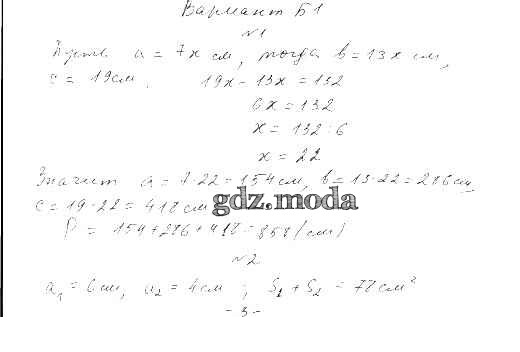 Вариант Б1
№1
Пусть a = 7x см, тогда b = 13x см,
c = 19см. 19x - 13x = 132
6x = 132
x = 132 : 6
x = 22
Значит a = 7·22 = 154см, b = 13·22 = 286см
c = 19·22 = 418см
gdz.moda
P = 154 + 286 + 418 = 858 (см)
№2
a₁ = 6см, a₂ = 4см ; S₁ + S₂ = 78см²
- 3 -